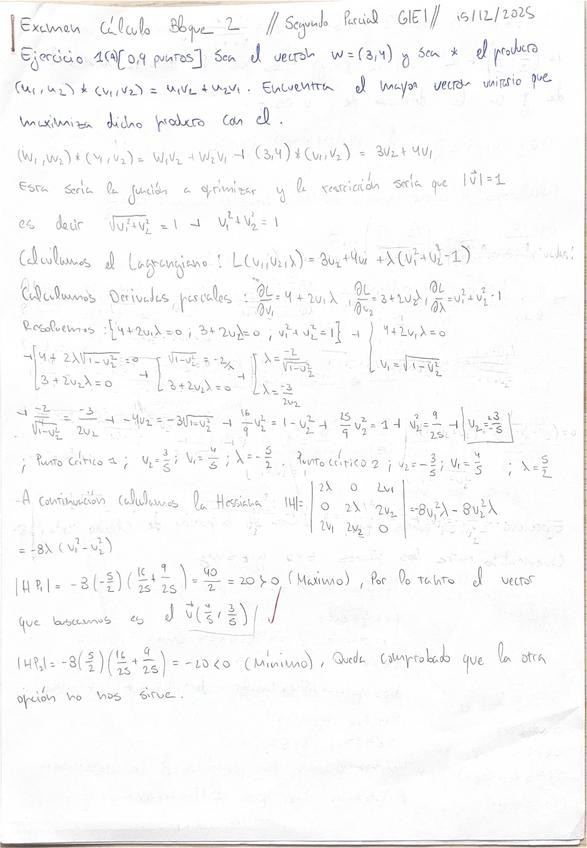 Examen Cálculo Bloque 2 // Segundo Parcial GIEI // 15/12/2025
Ejercicio 1(A)[0,4 puntos] Sea el vector W=(3,4) y sea * el producto
(u₁,u₂)*(v₁,v₂) = u₁v₂+u₂v₁. Encuentra el mayor vector unitario que
maximiza dicho producto con el.
(W₁,W₂)*(v₁,v₂) = W₁v₂+W₂v₁ → (3,4)*(v₁,v₂) = 3v₂+4v₁
Esta sería la función a optimizar y la restricción sería que |v⃗|=1
es decir √(v₁²+v₂²) = 1 → v₁²+v₂² = 1
Calculamos el Lagrangiano: L(v₁,v₂,λ) = 3v₂+4v₁+λ(v₁²+v₂²-1)
Calculamos Derivadas parciales: ∂L/∂v₁ = 4+2v₁λ, ∂L/∂v₂ = 3+2v₂λ, ∂L/∂λ = v₁²+v₂²-1
Resolvemos: {4+2v₁λ=0; 3+2v₂λ=0; v₁²+v₂²=1} → { 4+2v₁λ=0
v₁=√(1-v₂²)
→ [4+2λ√(1-v₂²)=0 → [√(1-v₂²)=-2/λ → [λ=-2/√(1-v₂²)
3+2v₂λ=0 3+2v₂λ=0 λ=-3/2v₂
→ -2/√(1-v₂²) = -3/2v₂ → -4v₂ = -3√(1-v₂²) → 16/9 v₂² = 1-v₂² → 25/9 v₂² = 1 → v₂² = 9/25 → v₂=±3/5
; Punto crítico 1; v₂=3/5; v₁=4/5; λ=-5/2. Punto crítico 2; v₂=-3/5; v₁=4/5; λ=5/2
-A continuación calculamos la Hessiana: |H|= | 2λ 0 2v₁ | = -8v₁²λ - 8v₂²λ
0 2λ 2v₂
2v₁ 2v₂ 0
= -8λ (v₁²-v₂²)
|HP₁| = -8(-5/2)(16/25+9/25) = 40/2 = 20>0 (Maximo), Por lo tanto el vector
que buscamos es el v⃗(4/5, 3/5)
|HP₂| = -8(5/2)(16/25+9/25) = -20<0 (Mínimo), Queda comprobado que la otra
opción no nos sirve.